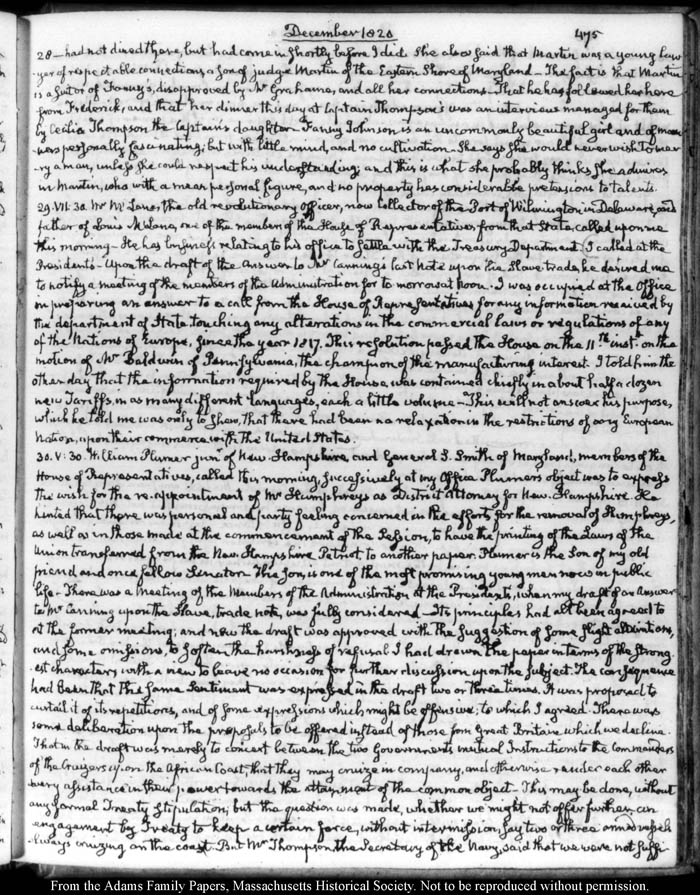 December 1820
475
28— had not dined there, but had come in shortly before I did. She also said that Martin was a young Law-
yer of respectable connections, a son of judge Martin of the Eastern Shore of Maryland— The fact is that Martin
is a suitor of Fanny's, disapproved by Mr Grahame, and all her connections. That he has followed her here
from Frederick, and that her dinner this day at Captain Thompson's was an interview managed for them
by Cecilia Thompson the Captain's daughter— Fanny Johnson is an uncommonly beautiful girl and of man-
ners personally fascinating; but with little mind, and no cultivation— She says she would never wish to mar-
ry a man, unless she could respect his understanding; and this is what she probably thinks she admires
in Martin, who with a mean personal figure, and no property has considerable pretensions to talents.
29. VII: 30. Mr McLane, the old revolutionary officer, now Collector of the Port of Wilmington in Delaware, and
father of Louis McLane, one of the members of the House of Representatives from that State, called upon me
this morning— He has business relating to his office to settle with the Treasury Department. I called at the
President's— Upon the draft of the answer to Mr Canning's last note upon the Slave trade, he desired me
to notify a meeting of the members of the Administration for to morrow at Noon. I was occupied at the Office
in preparing an answer to a call from the House of Representatives for any information received by
the department of State touching any alterations in the commercial laws or regulations of any
of the Nations of Europe, since the year 1817. This resolution passed the House on the 11th inst. on the
motion of Mr Baldwin of Pennsylvania, the champion of the manufacturing interest. I told him the
other day that the information required by the House, was contained chiefly in about half a dozen
new Tariffs, in as many different languages, each a little volume— This will not answer his purpose,
which he told me was only to shew, that there had been no relaxation in the restrictions of any European
Nation, upon their commerce with the United States.
30. V: 30. William Plumer junr. of New-Hampshire, and General S. Smith of Maryland, members of the
House of Representatives, called this morning, successively at my Office. Plumer's object was to express
the wish for the re-appointment of Mr Humphreys as District Attorney for New-Hampshire. He
hinted that there was personal and party feeling concerned in the efforts for the removal of Humphreys,
as well as in those made at the commencement of the Session, to have the printing of the Laws of the
Union transferred from the New Hampshire Patriot to another paper. Plumer is the Son of my old
friend and once fellow Senator— The Son, is one of the most promising young men now in public
life— There was a Meeting of the Members of the Administration at the President's, when my draft of an Answer
to Mr Canning upon the Slave-trade note, was fully considered— Its principles had all been agreed to
at the former meeting; and now the draft was approved with the suggestion of some slight alterations,
and some omissions, to soften the harshness of refusal. I had drawn the paper in terms of the strong-
est character, with a view to leave no occasion for further discussion upon the subject. The consequence
had been that the same sentiment was expressed in the draft two or three times. It was proposed to
curtail it of its repetitions, and of some expressions which might be offensive; to which I agreed. There was
some deliberation upon the proposals to be offered instead of those from Great Britain which we decline.
That in the draft was merely to concert between the two Governments mutual Instructions to the Commanders
of the Cruizers upon the African Coast, that they may cruize in company, and otherwise render each other
every assistance in their power towards the attainment of the common object— This may be done, without
any formal Treaty stipulation; but the question was made, whether we might not offer further, an
engagement by Treaty to keep a certain force, without intermission, say two or three armed vessels
always cruizing on the coast. But Mr Thompson, the Secretary of the Navy, said that we were not suffi-
From the Adams Family Papers, Massachusetts Historical Society. Not to be reproduced without permission.